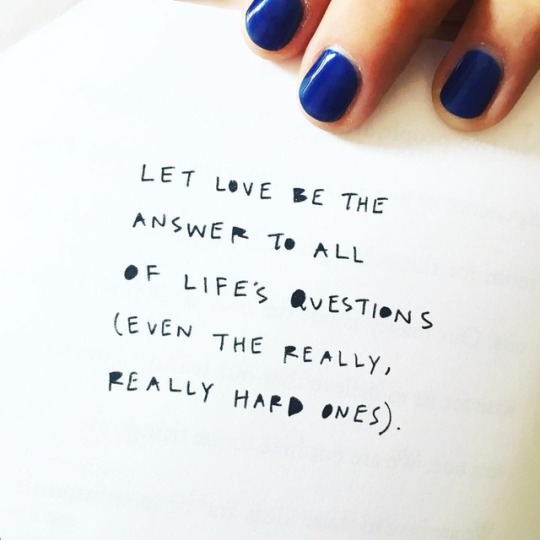 LET LOVE BE THE
ANSWER TO ALL
OF LIFE'S QUESTIONS
(EVEN THE REALLY,
REALLY HARD ONES).